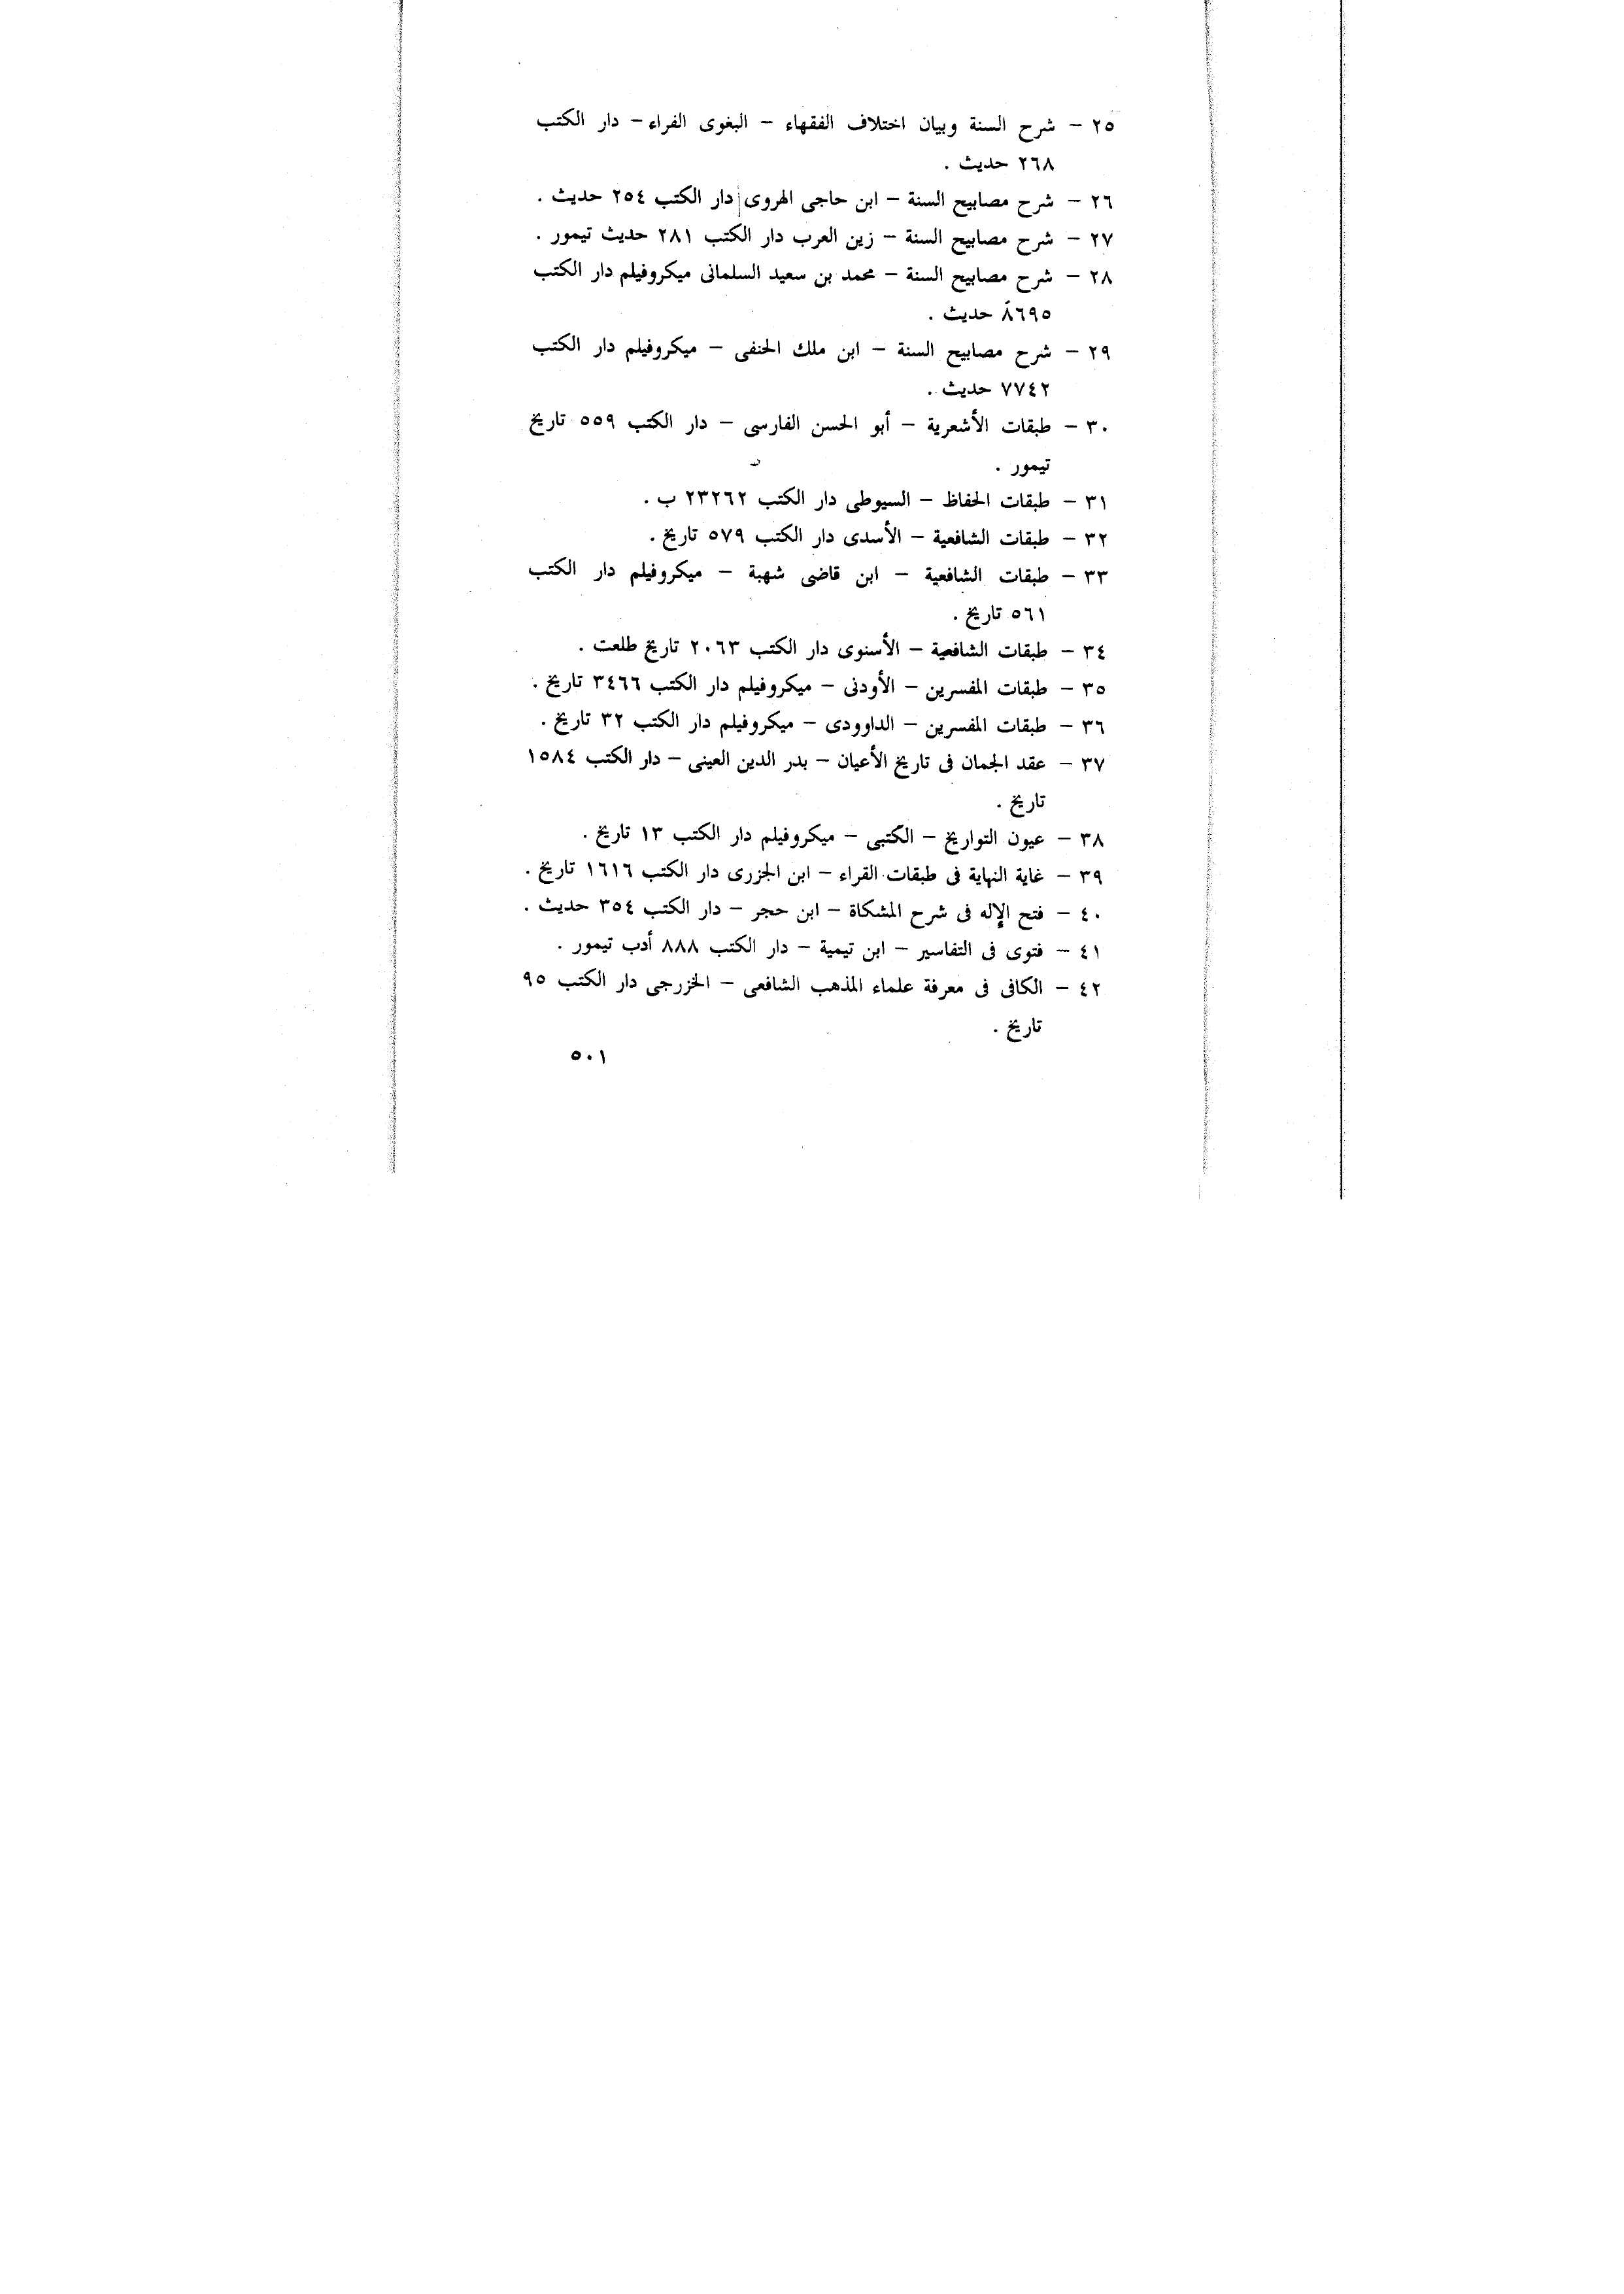 ٢٥ – شرح السنة وبيان اختلاف الفقهاء – البغوى الفراء – دار الكتب
٢٦٨ حديث .
٢٦ – شرح مصابيح السنة – ابن حاجى الهروى دار الكتب ٢٥٤ حديث .
٢٧ – شرح مصابيح السنة – زين العرب دار الكتب ٢٨١ حديث تيمور .
٢٨ – شرح مصابيح السنة – محمد بن سعيد السلمانى ميكروفيلم دار الكتب
٨٦٩٥ حديث .
٢٩ – شرح مصابيح السنة – ابن ملك الحنفى – ميكروفيلم دار الكتب
٧٧٤٢ حديث .
٣٠ – طبقات الأشعرية – أبو الحسن الفارسى – دار الكتب ٥٥٩ تاريخ
تيمور .
٣١ – طبقات الحفاظ – السيوطى دار الكتب ٢٣٢٦٢ ب .
٣٢ – طبقات الشافعية – الأسدى دار الكتب ٥٧٩ تاريخ .
٣٣ – طبقات الشافعية – ابن قاضى شهبة – ميكروفيلم دار الكتب
٥٦١ تاريخ .
٣٤ – طبقات الشافعية – الأسنوى دار الكتب ٢٠٦٣ تاريخ طلعت .
٣٥ – طبقات المفسرين – الأودنى – ميكروفيلم دار الكتب ٣٤٦٦ تاريخ .
٣٦ – طبقات المفسرين – الداوودى – ميكروفيلم دار الكتب ٣٢ تاريخ .
٣٧ – عقد الجمان فى تاريخ الأعيان – بدر الدين العينى – دار الكتب ١٥٨٤
تاريخ .
٣٨ – عيون التواريخ – الكتبى – ميكروفيلم دار الكتب ١٣ تاريخ .
٣٩ – غاية النهاية فى طبقات القراء – ابن الجزرى دار الكتب ١٦١٦ تاريخ .
٤٠ – فتح الإله فى شرح المشكاة – ابن حجر – دار الكتب ٣٥٤ حديث .
٤١ – فتوى فى التفاسير – ابن تيمية – دار الكتب ٨٨٨ أدب تيمور .
٤٢ – الكافى فى معرفة علماء المذهب الشافعى – الخزرجى دار الكتب ٩٥
تاريخ .
٥٠١